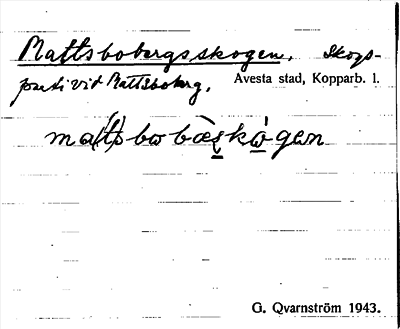 Mattsbobergsskogen. Skogs-
parti vid Mattsboberg. Avesta stad, Kopparb. l.
ma(t)tsbobæskògen
G. Qvarnström 1943.